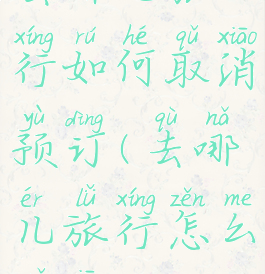 xíng rú hé qǔ xiāo
行如何取消
yù dìng qù nǎ
预订(去哪
ér lǚ xíng zěn me
儿旅行怎么